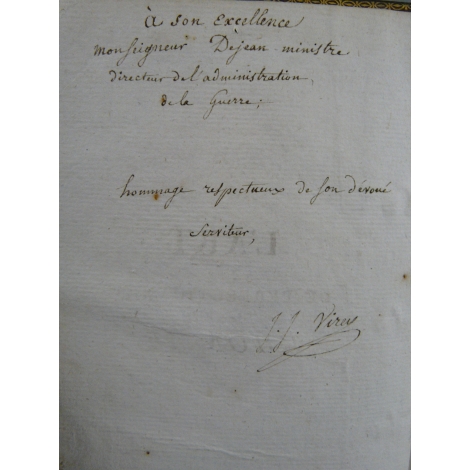 à son excellence
monseigneur Dejean ministre
directeur de l'administration
de la Guerre;
hommage respectueux de son dévoué
serviteur,
J. J. Virey